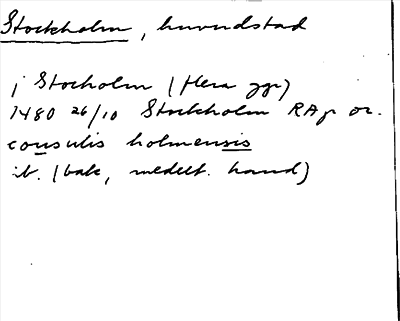 Stockholm, huvudstad
j Stocholm (flera ggr)
1480 26/10 Stockholm RAp or.
consulis holmensis
ib. (bak, medelt. hand)